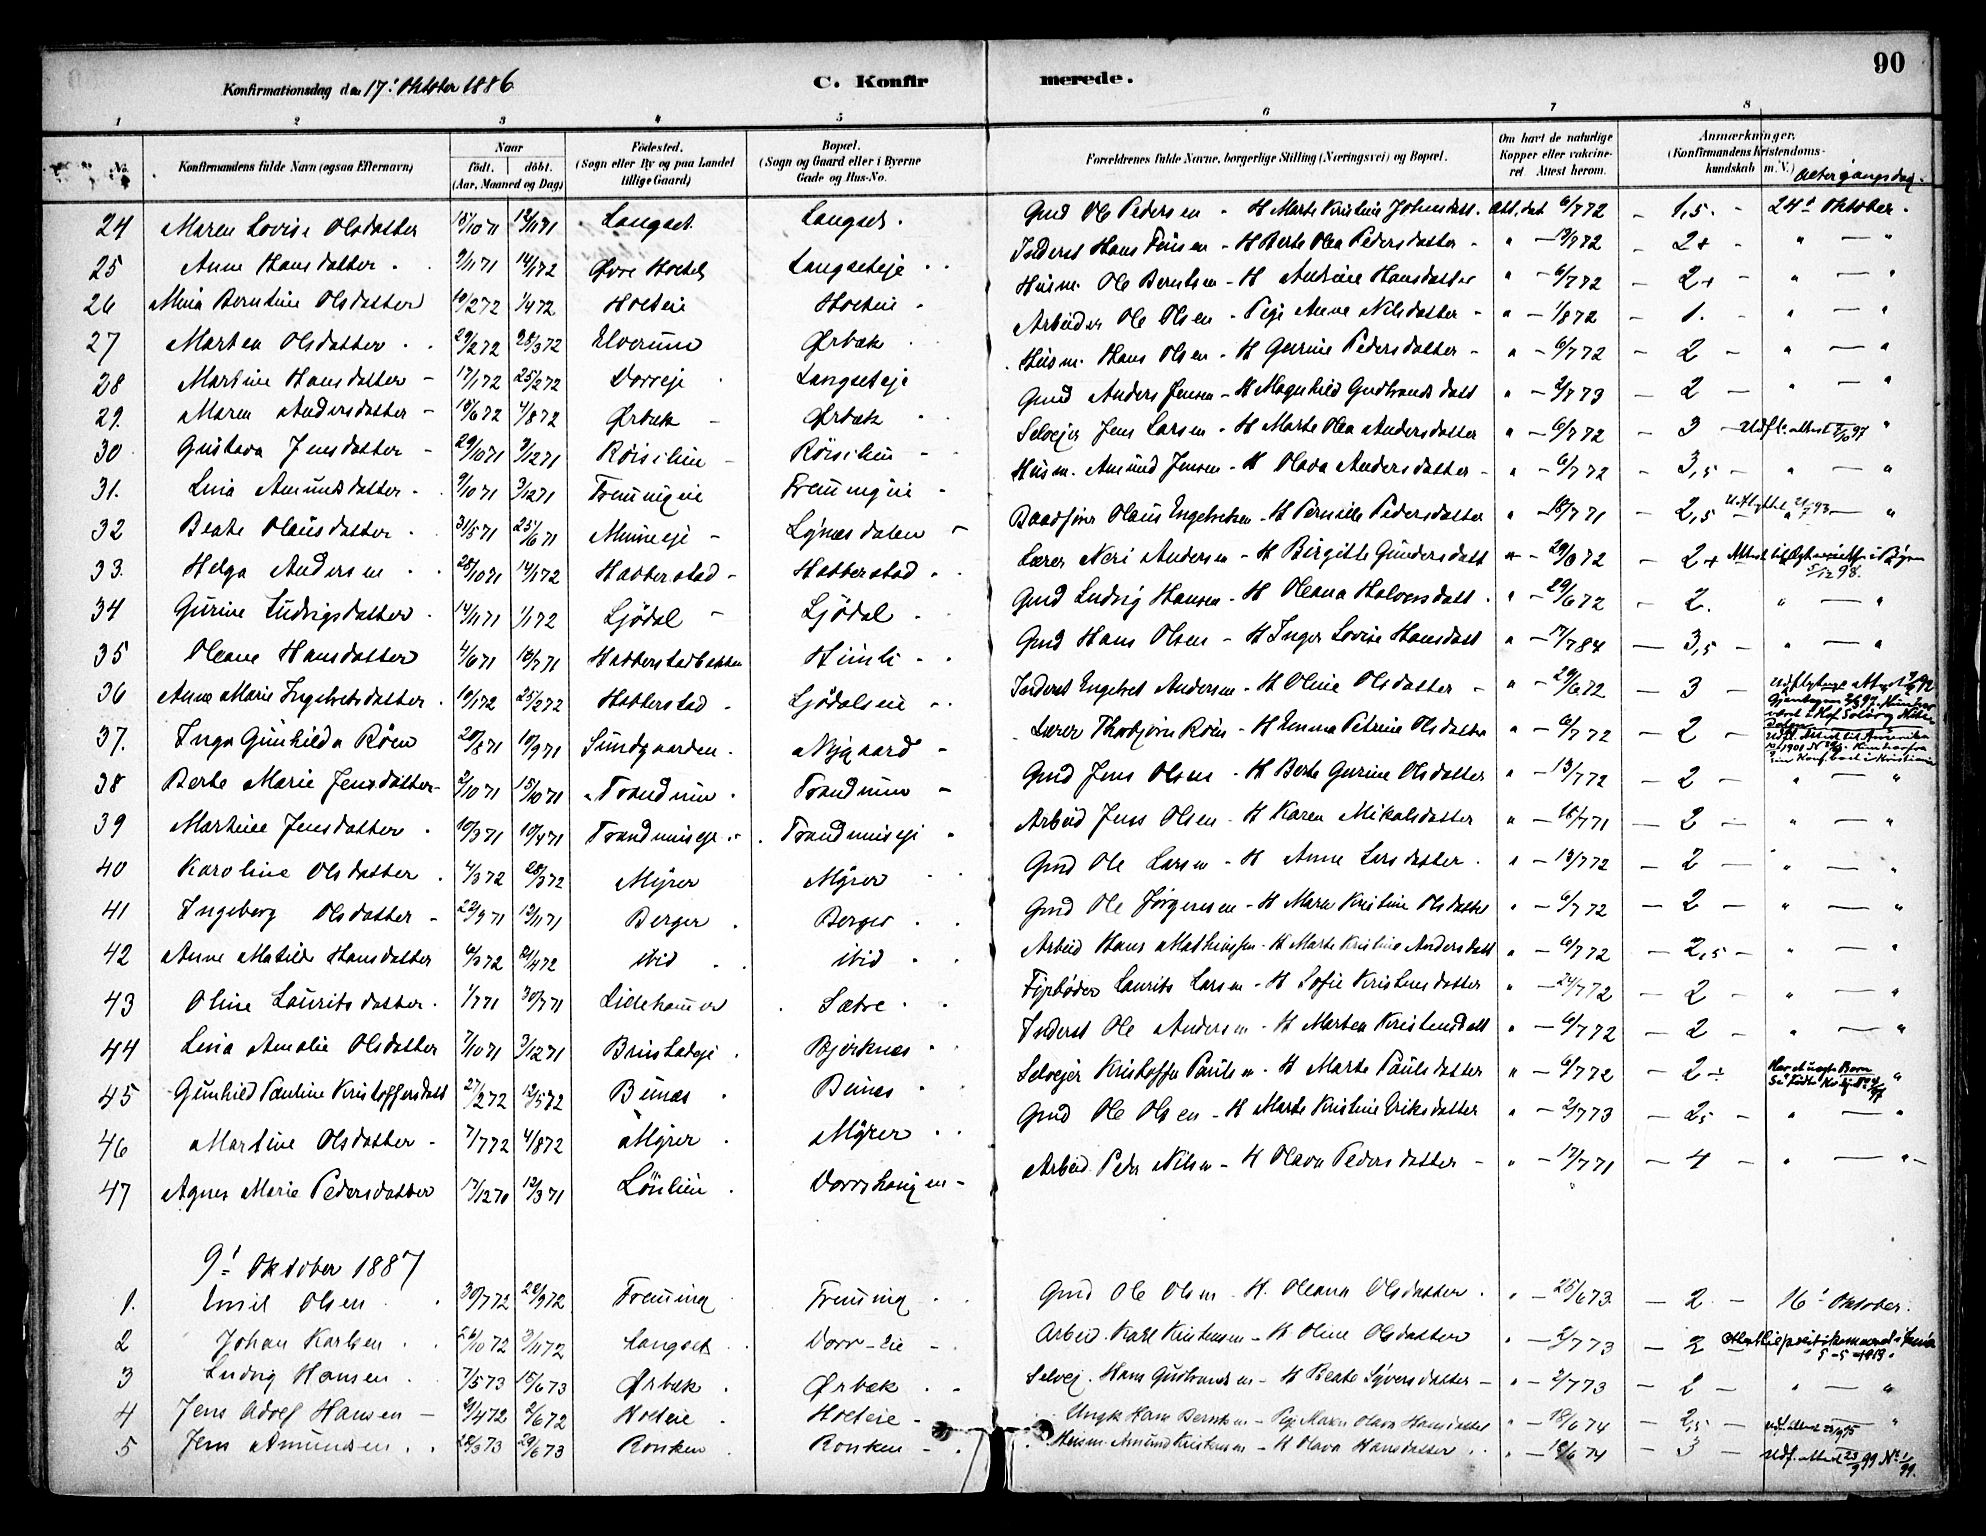 90
Konfirmationsdag den 17. Oktober 1886 C. Konfirmerede.
1 2 3 4 5 6 7 8
No. Konfirmandens fulde Navn (ogsaa Efternavn) Naar født. døbt. (Aar, Maaned og Dag) Fødested. (Sogn eller By og paa Landet tillige Gaard) Bopæl. (Sogn og Gaard eller i Byerne Gade og Hus-No. Forældrenes fulde Navne, borgerlige Stilling (Næringsvei) og Bopæl. Om havt de naturlige Kopper eller vaccineret. Attest herom. Anmærkninger. (Konfirmandens Kristendomskundskab m. V.) Altergangsdag.
24 Maren Lovise Olsdatter 12/11 71 Langset. Langset. Gmd Ole Pedersen - H Marte Kristine Johnsdatt. Att. dat 6/7 72 - 1,5. - 24' Oktober.
25 Anne Hansdatter. 9/11 71 14/1 72 Øvre Holtet Langseteje Inderst Hans - H Berte Olea Pedersdatter - " - 2+ - " — "
26 Mina Berntine Olsdatter 10/2 72 1/4 72 Holteie Holteie Husm. Ole Berntsen - H Andrine Hansdatter " - 6/7 72 - 2+ " — "
27 Marten Olsdatter 29/2 72 28/3 72 Elverum Ørbæk Arbeider Ole Olsen - Pige Anne Nilsdatter - " - 1/8 72 - 1. - " — "
28 Martine Hansdatter - 17/1 72 25/2 72 Dorreje Langseteje Husm. Hans Olsen - H Gurine Pedersdatter - " - 6/7 72 - 2 - " — "
29. Maren Andersdatter - 15/6 72 4/8 72 Ørbæk - Ørbæk Gmd Anders Jensen - H Magnhild Gudbrandsdatt " - 2/7 73 - 2 - " — "
30 Gustava Jensdatter - 29/10 71 3/12 71 Røisilien - Røisilien - Selvejer Jens Larsen - H Marte Olea Andersdatter " - 6/7 72 - 3 - Udfl. attest "
31. Lina Amundsdatter - 9/10 71 3/12 71 Fremingeie Fremingeie - Husm. Amund Jensen - H Olava Andersdatter - " - 6/7 72 - 3,5 - " — "
32 Beate Olausdatter 31/5 71 25/6 71 Minneeje - Lynæsdalen - Baadfører Olaus Engebretsen - H Pernille Pedersdatter " - 18/7 71 - 2,5 — "
33. Helga Andersen 28/10 71 14/1 72 Habberstad - Habberstad Lærer Neri Andersen - H Birgitte Gundersdatt " - 2+
34 Gurine Ludvigsdatter 14/11 71 1/1 72 Ljødal - Ljødal Gmd Ludvig Hansen - H Oleana Halvorsdatt. " - 29/6 72 - 2. " — "
35 Oleane Hansdatter 4/6 71 16/7 71 Habberstadbakken Himli Gmd Hans Olsen - H Inger Lovise Hansdatt " - 17/7 84 - 3,5 - " — "
36 Anna Marie Ingebretsdatter. 19/1 72 25/2 72 Habberstad - Ljødalseie Inderst Engebret Andersen - H Oline Olsdatter - " - 29/6 72 - 3 -
37. Inga Gunhilda Røen 20/8 71 10/9 71 Sundgaarden. Nygaard - Lærer Thorbjørn Røen - H Emma Petrine Olsdatter " - 6/7 72 - 2 -
38 Berte Marie Jensdatter - 2/10 71 15/10 71 Trandum. Trandum - Gmd Jens Olsen - H Berte Gurine Olsdatter " - 13/7 72 - 2 - " — "
39 Martine Jensdatter 10/3 71 10/4 71 Trandumseje. Trandumseje Arbeid Jens Olsen - H Karen Mikalsdatter " - 18/7 71 - 2 - " — "
40 Karoline Olsdatter 4/3 72 28/3 72 Myrer Myrer Gmd Ole Larsen - H Anne Larsdatter. " - 13/7 72 - 2 - " — "
41 Ingeborg Olsdatter - 22/9 71 12/11 71 Berger Berger Gmd Ole Jørgensen - H Maren Kristine Olsdatter " - 6/7 72 - 2 - " — "
42 Anne Matilde Hansdatter 21/4 72 ibid ibid Arbeid Hans Mathiassen - H Marte Kristine Andersdatt " - 6/7 72 - 2,5 - " — "
43 Oline Lauritsdatter. 1/7 71 30/7 71 Lillehammer Sætre Fyrbøder Laurits Larsen - H Sofie Kristensdatter " - 24/7 72 - 2 - " — "
44 Lina Amalie Olsdatter 7/10 71 3/12 71 Bjørknæs Inderst Ole Andersen - H Marten Kristensdatt " - 6/7 72 - 2 - " — "
45 Gunhild Pauline Kristoffersdatt 27/2 72 12/5 72 Bunæs Bunæs Selvejer Kristoffer Paulsen - H Marte Paulsdatter " - 6/7 72 - 2 ÷ Har et uægte Barn "
46 Martine Olsdatter - 7/7 72 4/8 72 Myrer Myrer Gmd Ole Olsen - H Marte Kristine Eriksdatter " - 2/7 73 - 2,5 - " — "
47 Agnes Marie Pedersdatter 17/12 70 12/3 71 Lønlien Dorrshaugen - Arbeid. Peder Nilsen - H Olava Pedersdatter - " - 17/7 71 - 4 - " — " -
9' Oktober 1887
1. Emil Olsen 30/7 72 22/9 72 Freming Freming Gmd Ole Olsen - H. Oleana Olsdatter. " - 25/6 73 - 2 - 16' Oktober.
2 Johan Karlsen 26/10 72 3/11 72 Langset Dorr-eie - Arbeid. Karl Kristensen - H Oline Olsdatter " - 2/7 73 - 2 5-5-1913.
3 Ludvig Hansen 7/5 73 15/6 73 Ørbæk Ørbæk Selvej. Hans Gudbrandsen - H Beate Syversdatter - " - 2/7 73 - 2 - " — "
4 Jens Adolf Hansen - 21/4 72 2/6 72 Holteie Holteie - Ungk Hans Berntsen - Pige Maren Olava Hansdatter " - 18/6 74 - 2,5 - Udf. attest "
5 Jens Amundsen 29/6 73 Ronken Ronken - Husm. Amund Kristensen - H Olava Hansdatter " - 18/6 74 - 3 - Udf. attest 23/9 99 No 1/99.